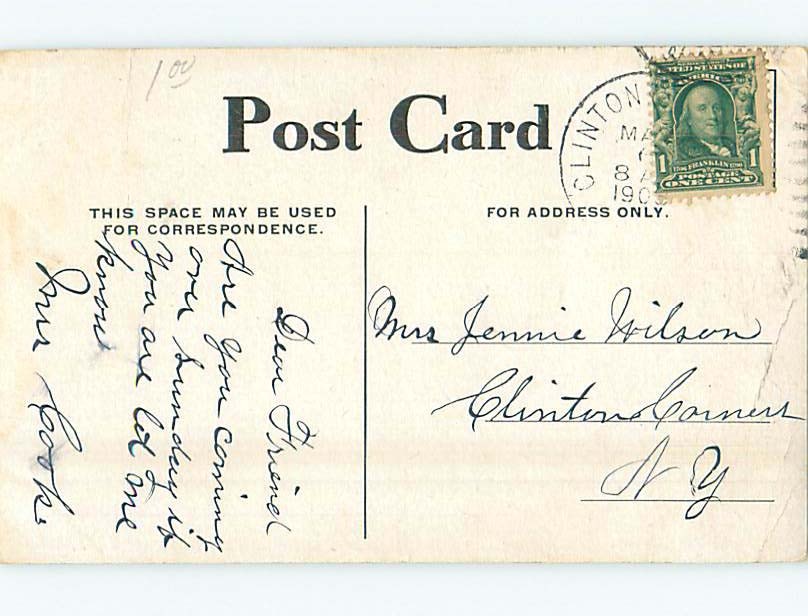 1 00
Post Card
THIS SPACE MAY BE USED
FOR CORRESPONDENCE.
FOR ADDRESS ONLY.
CLINTON
MA
8 A
190
UNITED STATES OF
AMERICA
1706 FRANKLIN 1790
1 POSTAGE 1
ONE CENT
Dear Friend
Are you coming
over sunday if
you are let me
know
Mrs Cooke
Mrs Jennie Wilson
Clinton Corners
N Y